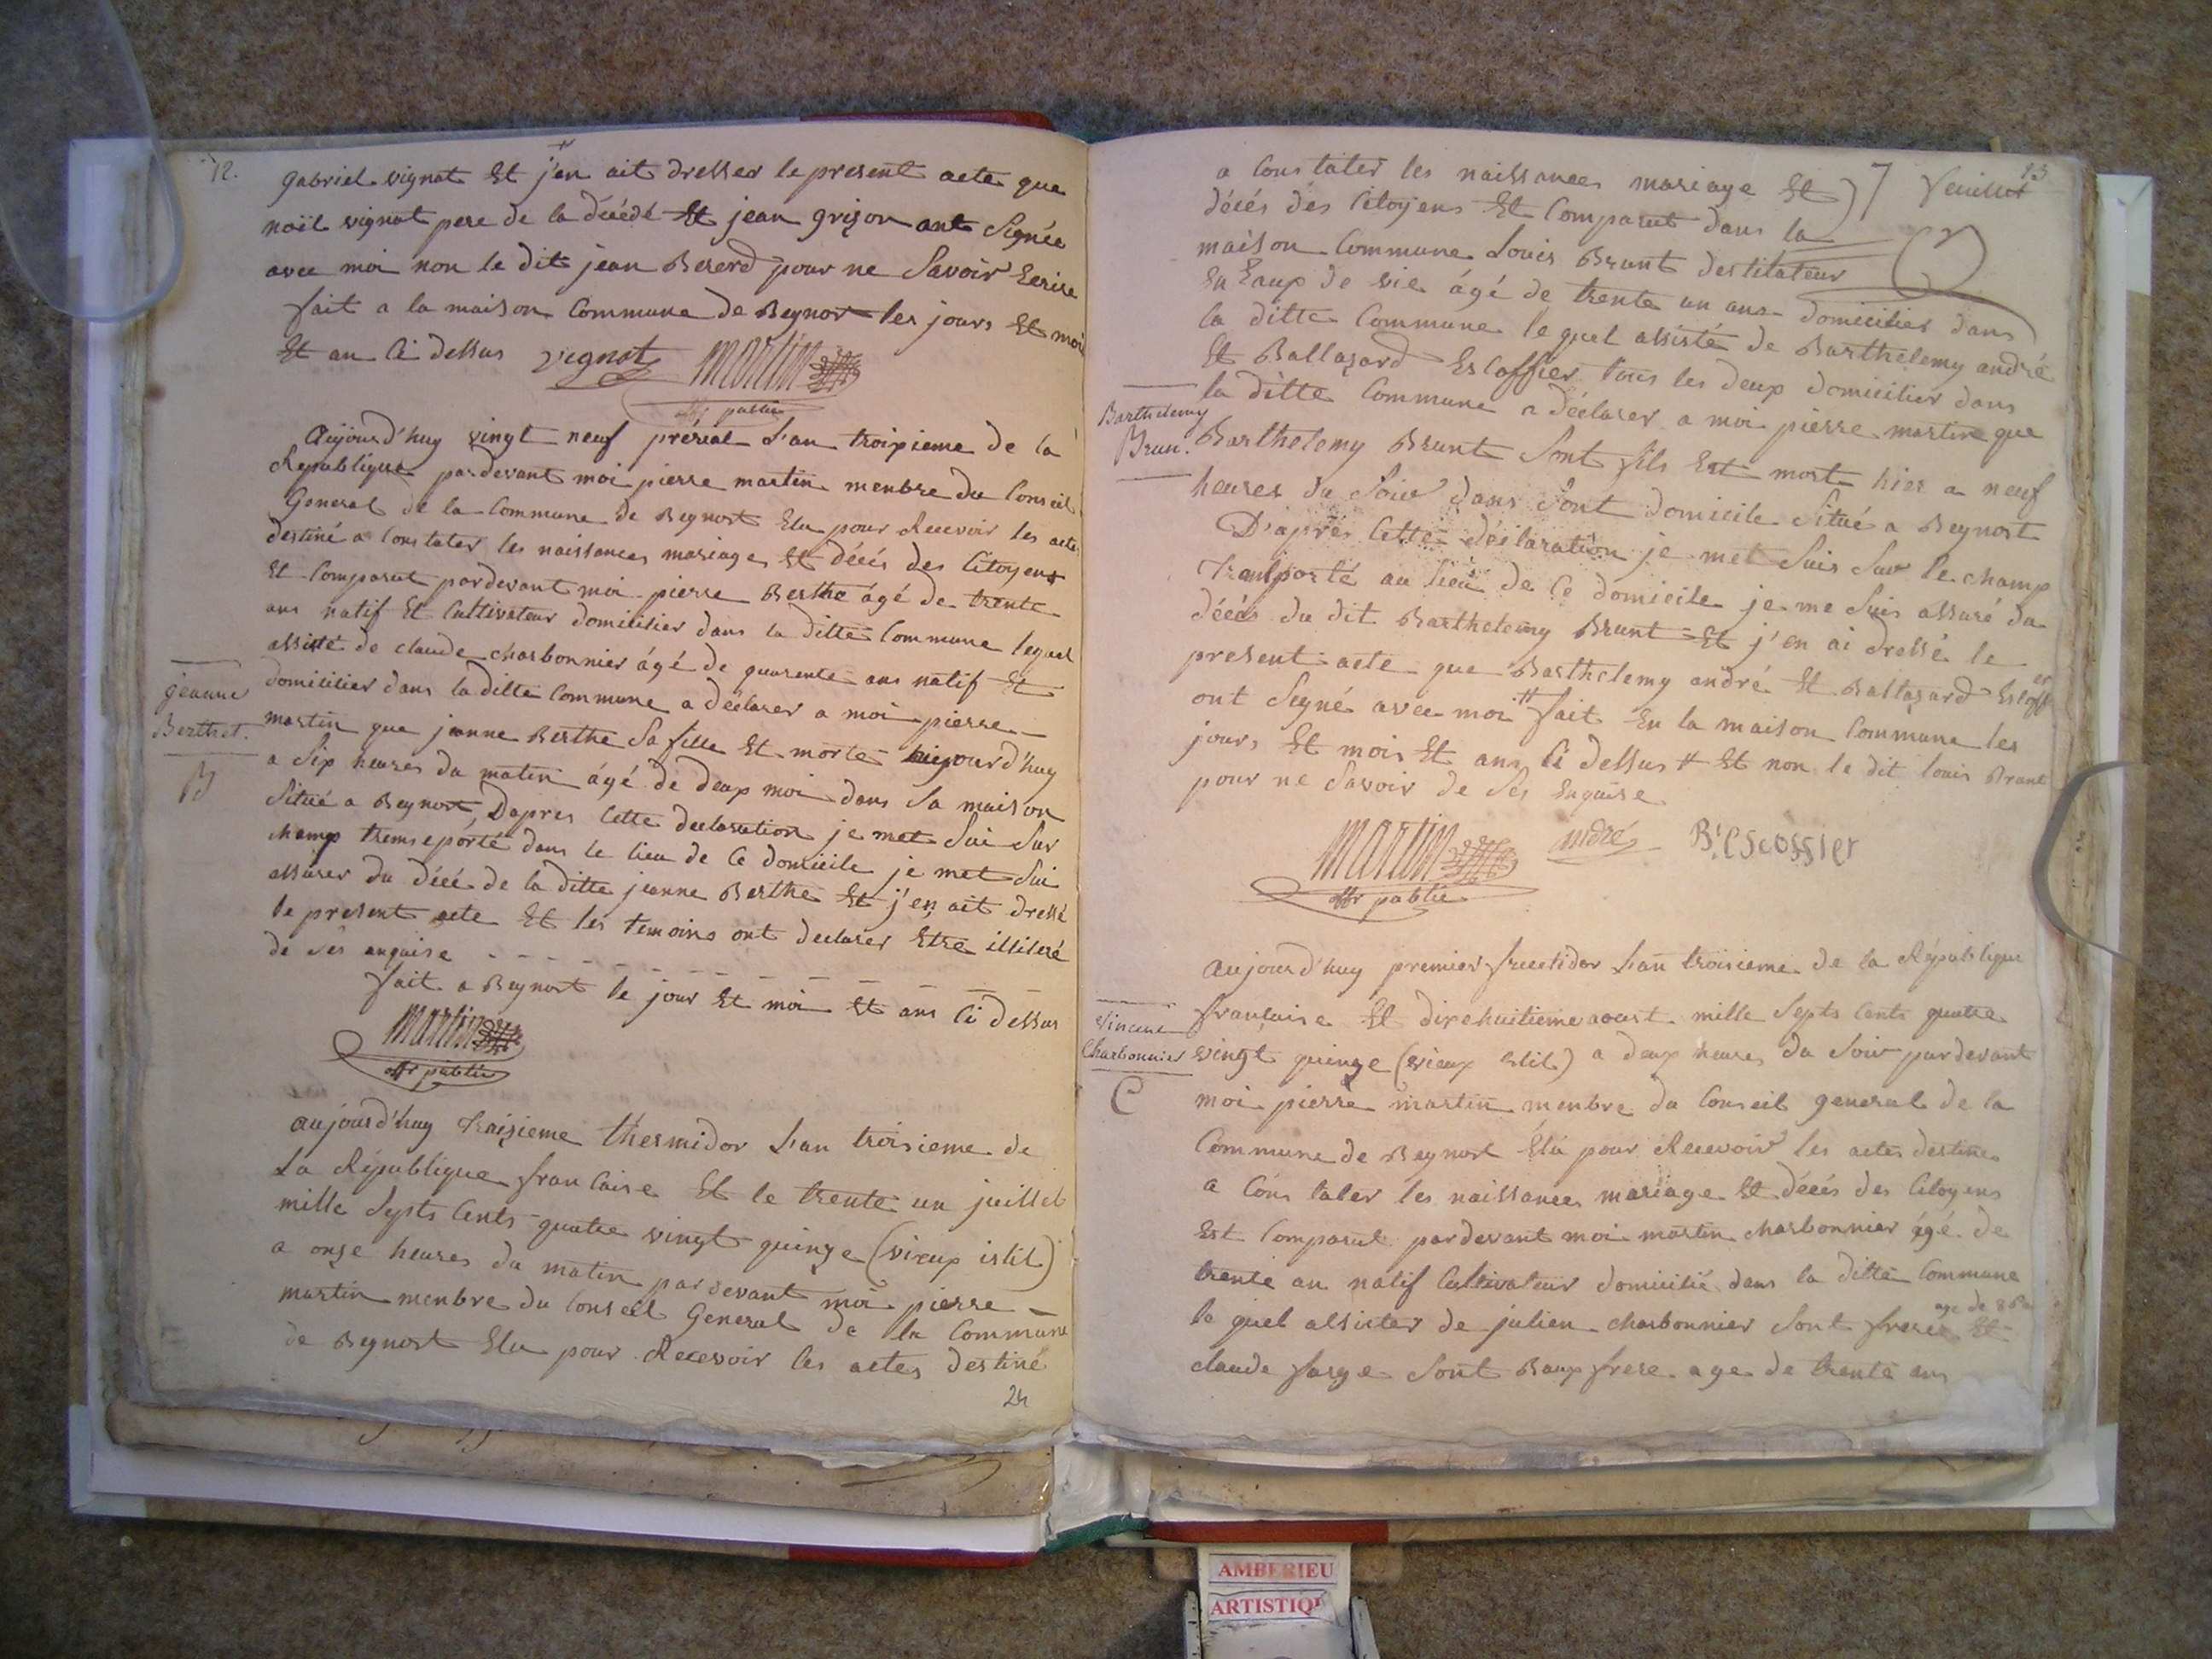 12.
gabriel vignat Et j'en ait dresser le present acte que
noël vignat pere de la décédé Et jean grizon ant Signée
avec moi non le dit jean Bererd pour ne Savoir Ecrire
fait a la maison Commune de Beynost les jours Et moi
Et an Ci dessus vignat martin
offr public
Aujourd'huy vingt neuf prérial L'an troixieme de la
Republique pardevant moi pierre martin menbre du Conseil
General de la Commune de Beynost Elu pour Recevoir les actes
destiné a Constater les naissances mariages Et décés des Citoyens
Et Comparut pardevant moi pierre Berthe âgé de trente
ans natif Et Cultivateur domicilier dans la ditte Commune lequel
assisté de claude charbonnier âgé de quarente ans natif Et
domicilier dans la ditte Commune a déclarer a moi pierre
jeanne
Berthet.
B
martin que jeanne Berthe Sa fille Et morte aujourd'huy
a Six heures du matin âgé de deux moi dans Sa maison
Situé a Beynost, Dapres Cette declaration je met Sui Sur
champ trenseporté dans le lieu de Ce domicile je met Sui
assurer du décé de la ditte jeanne Berthe Et j'en ait dressé
le present acte Et les temoins ont declarer Etre illiteré
de Ses enquise
fait a Beynost le jour Et moi Et ans Ci dessus
martin
offr public
aujourd'huy traizieme thermidor L'an troisieme de
La République francaise Et le trente un juillet
mille Septs Cents quatre vingt quinze (vieux istil)
a onze heures du matin pardevant moi pierre
martin menbre du Conseil General de la Commune
de Beynost Elu pour Recevoir les actes destiné
24
13
7 feuillet
a Constater les naissances mariage Et
décés des Citoyens Et Comparut dans la
maison Commune Louis Brunt destilateur
En Eaux de vie âgé de trente un ans domicilier dans
la ditte Commune lequel assisté de Barthelemy andré
Et Baltazard Escoffier tous les deux domicilier dans
la ditte Commune a déclarer a moi pierre martin que
Barthelemy
Brun.
Barthelemy Brunt Sont fils Est mort hier a neuf
heures du Soir dans Sont domicile Situé a Beynost
D'après Cette déclaration je met Suis Sur le champ
transporté au lieu de Ce domicile je me Suis assuré du
décés du dit Barthelemy Brunt Et j'en ai dressé le
present acte que Barthelemy andré Et Baltazard Escoffier
ont Segné avec moi # fait En la maison Commune les
jours Et mois Et ans Ci dessus # Et non le dit louis Brunt
pour ne Savoir de Ses Enquise
martin andré B. Escoffier
offr public
aujourd'huy premier fructidor L'an troisieme de la République
francaise Et dixehuitieme aoust mille Septs Cents quatre
Vincent
Charbonnier
C
vingt quinze (vieux estil) a deux heures du Soir pardevant
moi pierre martin menbre du Conseil general de la
Commune de Beynost Elu pour Recevoir les actes destinés
a Constater les naissances mariage Et décés des Citoyens
Est Comparut pardevant moi martin charbonnier âgé de
trente an natif Cultivateur domicilié dans la ditte Commune
le quel assister de julien charbonnier Sont frere Et
claude farge Sont Baux frere age de trente ans
AMBERIEU
ARTISTIQ